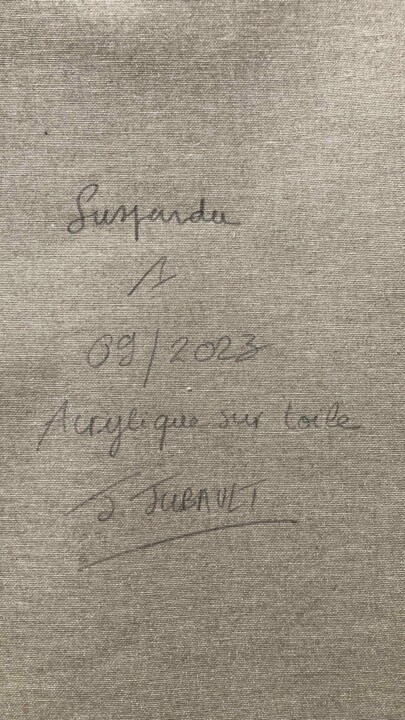 Suspendu
1
09/2023
Acrylique sur toile
J. JUBAULT